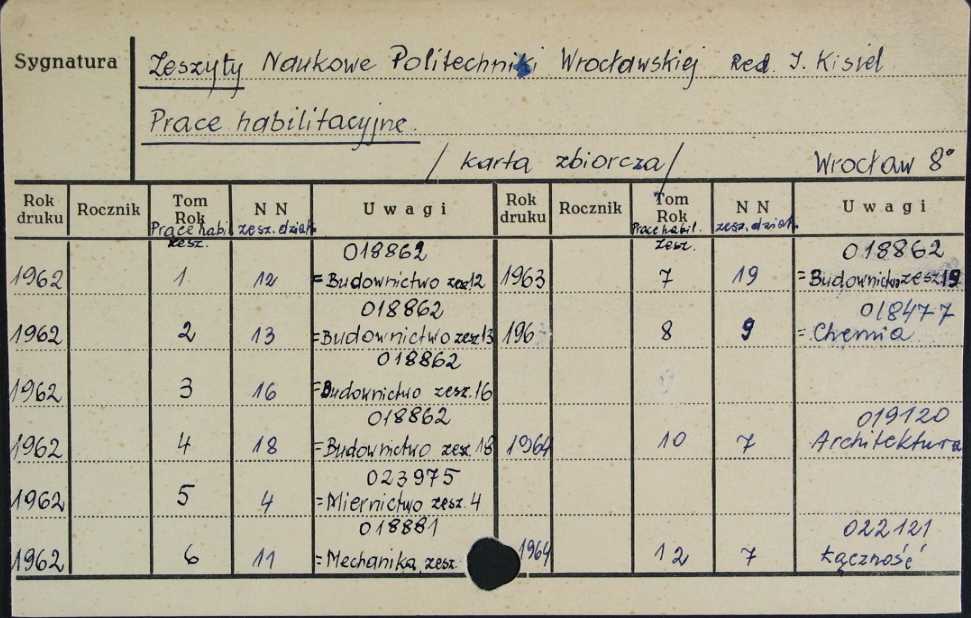 Sygnatura
Zeszyty Naukowe Politechniki Wrocławskiej Red. I. Kisiel
Prace habilitacyjne.
/karta zbiorcza/ Wrocław 8°
Rok druku Rocznik Tom Rok N N Uwagi Rok druku Rocznik Tom Rok N N Uwagi
Prace habil. zesz. zesz. dział. Prace habil. zesz. zesz. dział.
018862 018862
1962 1 12 =Budownictwo zesz 12 1963 7 19 =Budownictwo zesz 19
018862 018477
1962 2 13 =Budownictwo zesz 13 196 8 9 =Chemia
018862
1962 3 16 =Budownictwo zesz. 16
018862 019120
1962 4 18 =Budownictwo zesz 18 1964 10 7 Architektura
023975
1962 5 4 =Miernictwo zesz. 4
018881 022121
1962 6 11 =Mechanika, zesz. 1964 12 7 Łączność